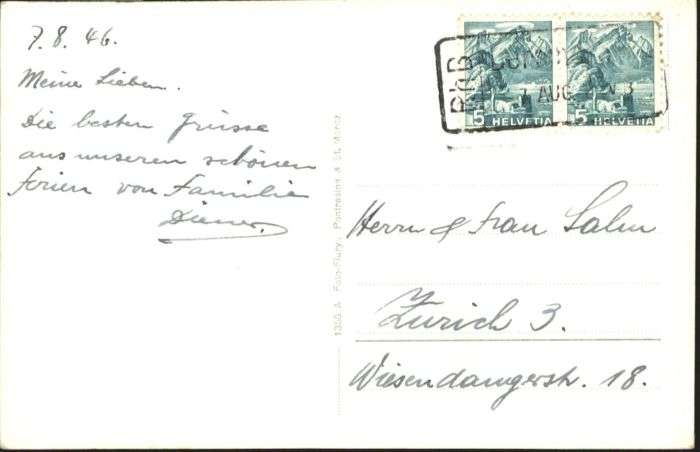 7.8.46.
Meine Lieben.
Die besten Grüsse
aus unseren schönen
Ferien von Familie
Diener.
1350 A Foto-Flury, Pontresina & St. Moritz
RhB
7 AUG
5 HELVETIA
5 HELVETIA
Herrn & Frau Salm
Zürich 3.
Wiesendangerstr. 18.